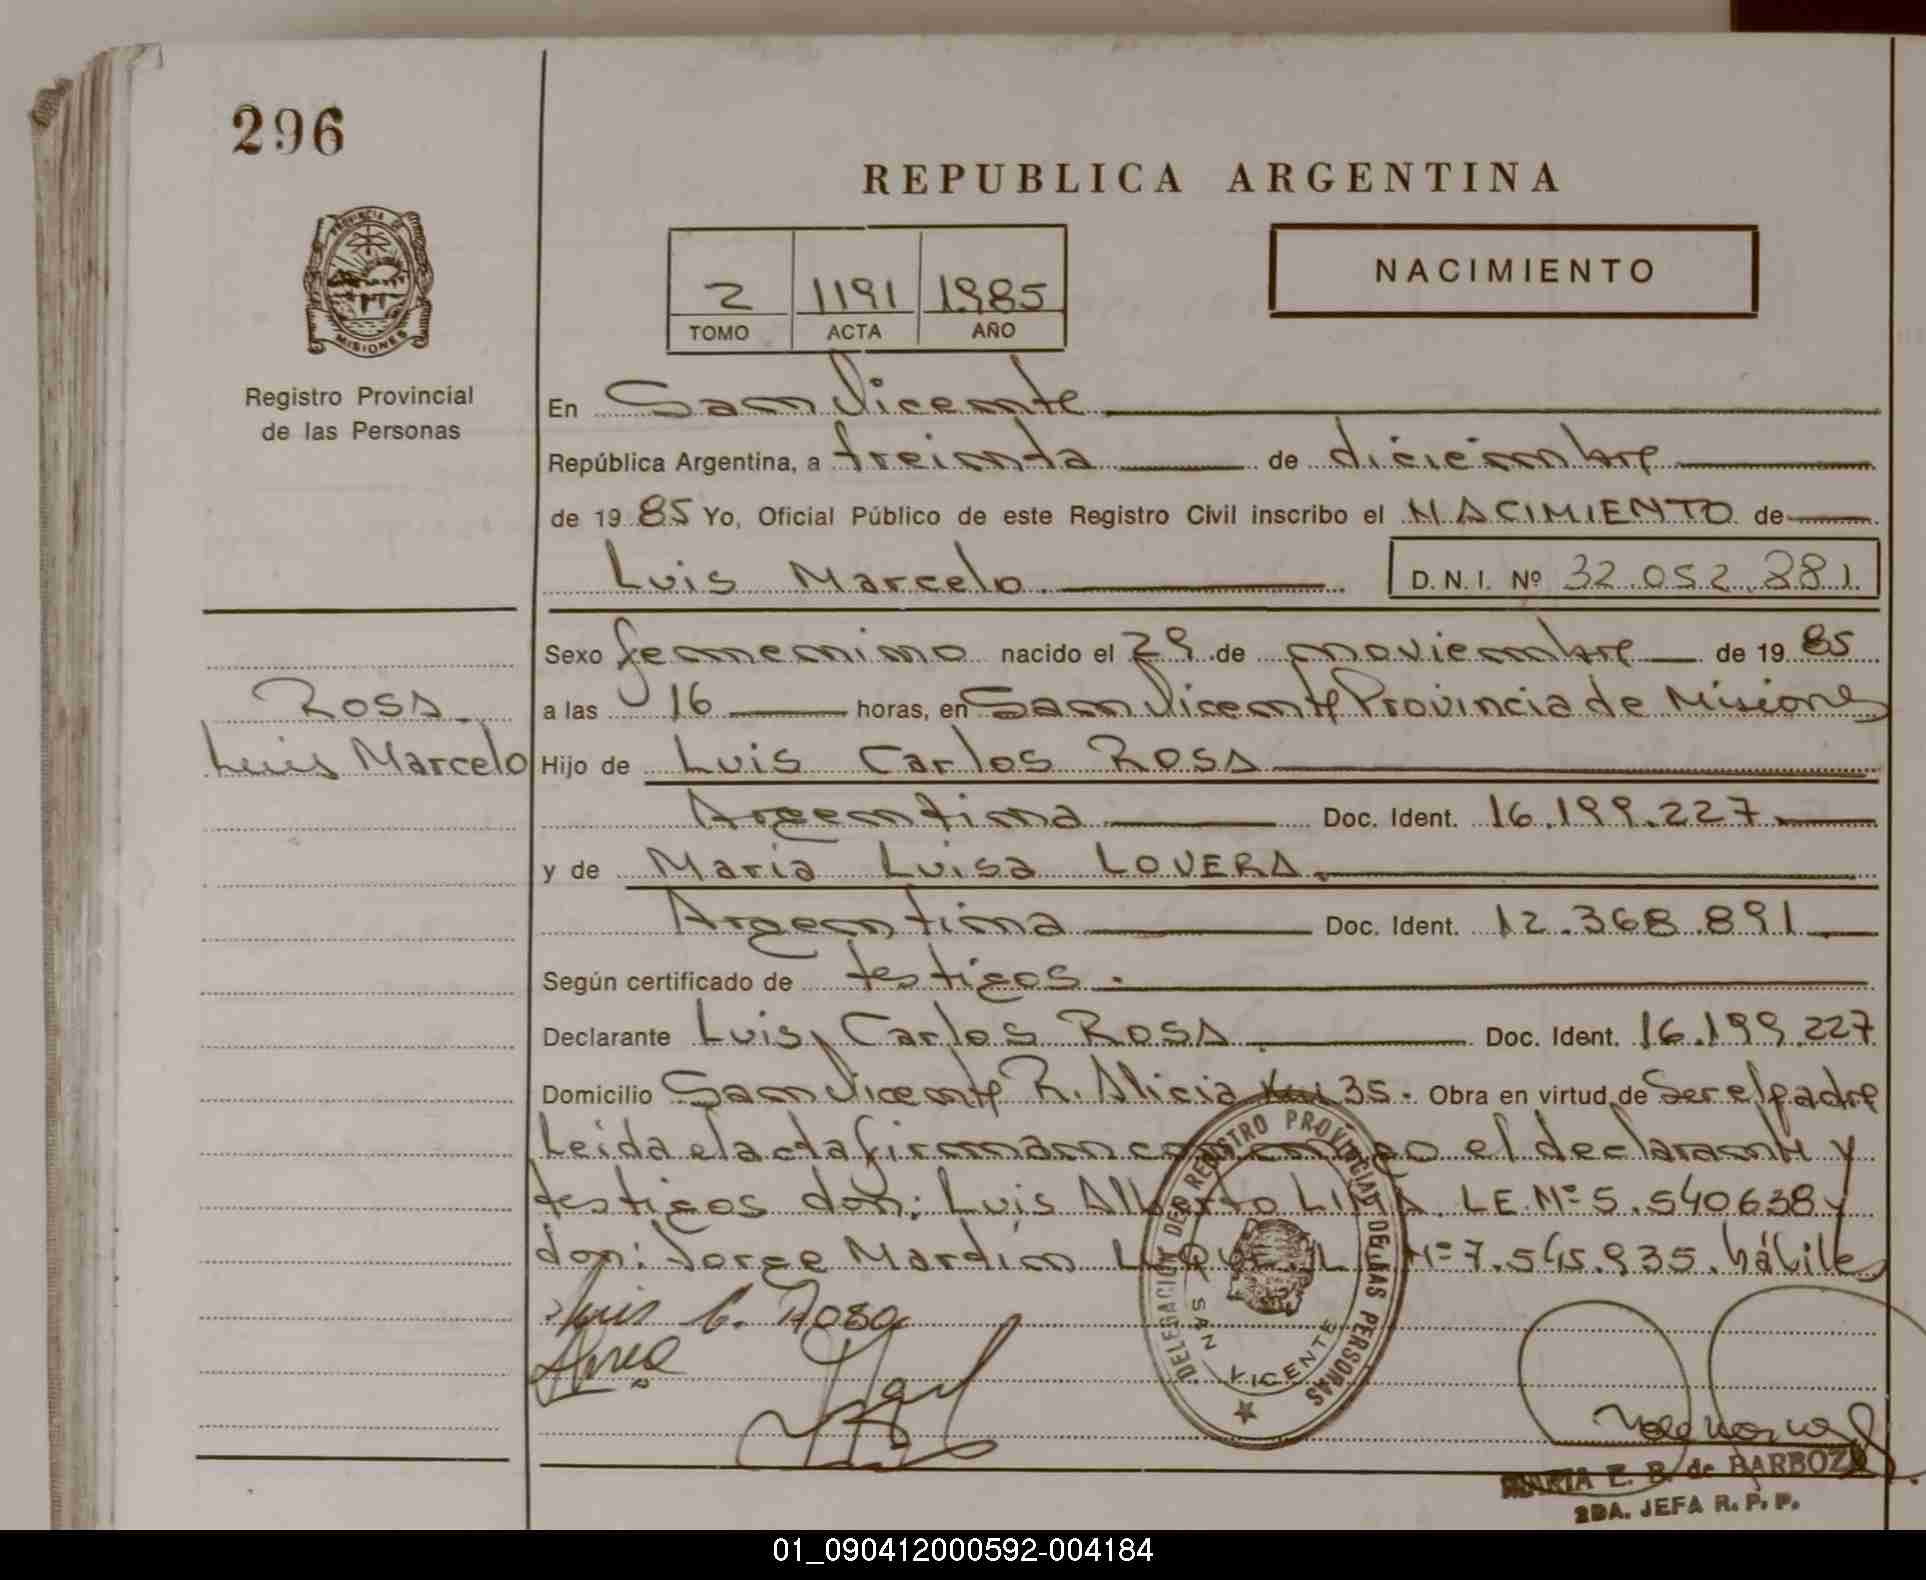 296
REPUBLICA ARGENTINA
PROVINCIA DE
MISIONES
Registro Provincial
de las Personas
2 1191 1985
TOMO ACTA AÑO
NACIMIENTO
En San Vicente
República Argentina, a treinta de diciembre
de 19 85 Yo, Oficial Público de este Registro Civil inscribo el NACIMIENTO de
Luis Marcelo. D. N. I. Nº 32.052.381
Sexo femenino nacido el 29 de noviembre de 19 85
Rosa
a las 16 horas, en San Vicente Provincia de Misiones
Luis Marcelo
Hijo de Luis Carlos ROSA
Argentina Doc. Ident. 16.199.227
y de Maria Luisa LOVERA
Argentina Doc. Ident. 12.368.891
Según certificado de testigos.
Declarante Luis Carlos ROSA Doc. Ident. 16.199.227
Domicilio San Vicente R. Alicia 35. Obra en virtud de ser el padre
Leida el acta firman conmigo el declarante y
testigos don: Luis Alberto LIMA LE.Nº 5.540638 y
don: Jorge Mardin Nº 7.545.935. hábiles
Luis C. Rosa
DELEGACION DEL REGISTRO PROVINCIAL DE LAS PERSONAS
SAN VICENTE
MARIA E. B. de BARBOZA
2DA. JEFA R. P. P.
01_090412000592-004184